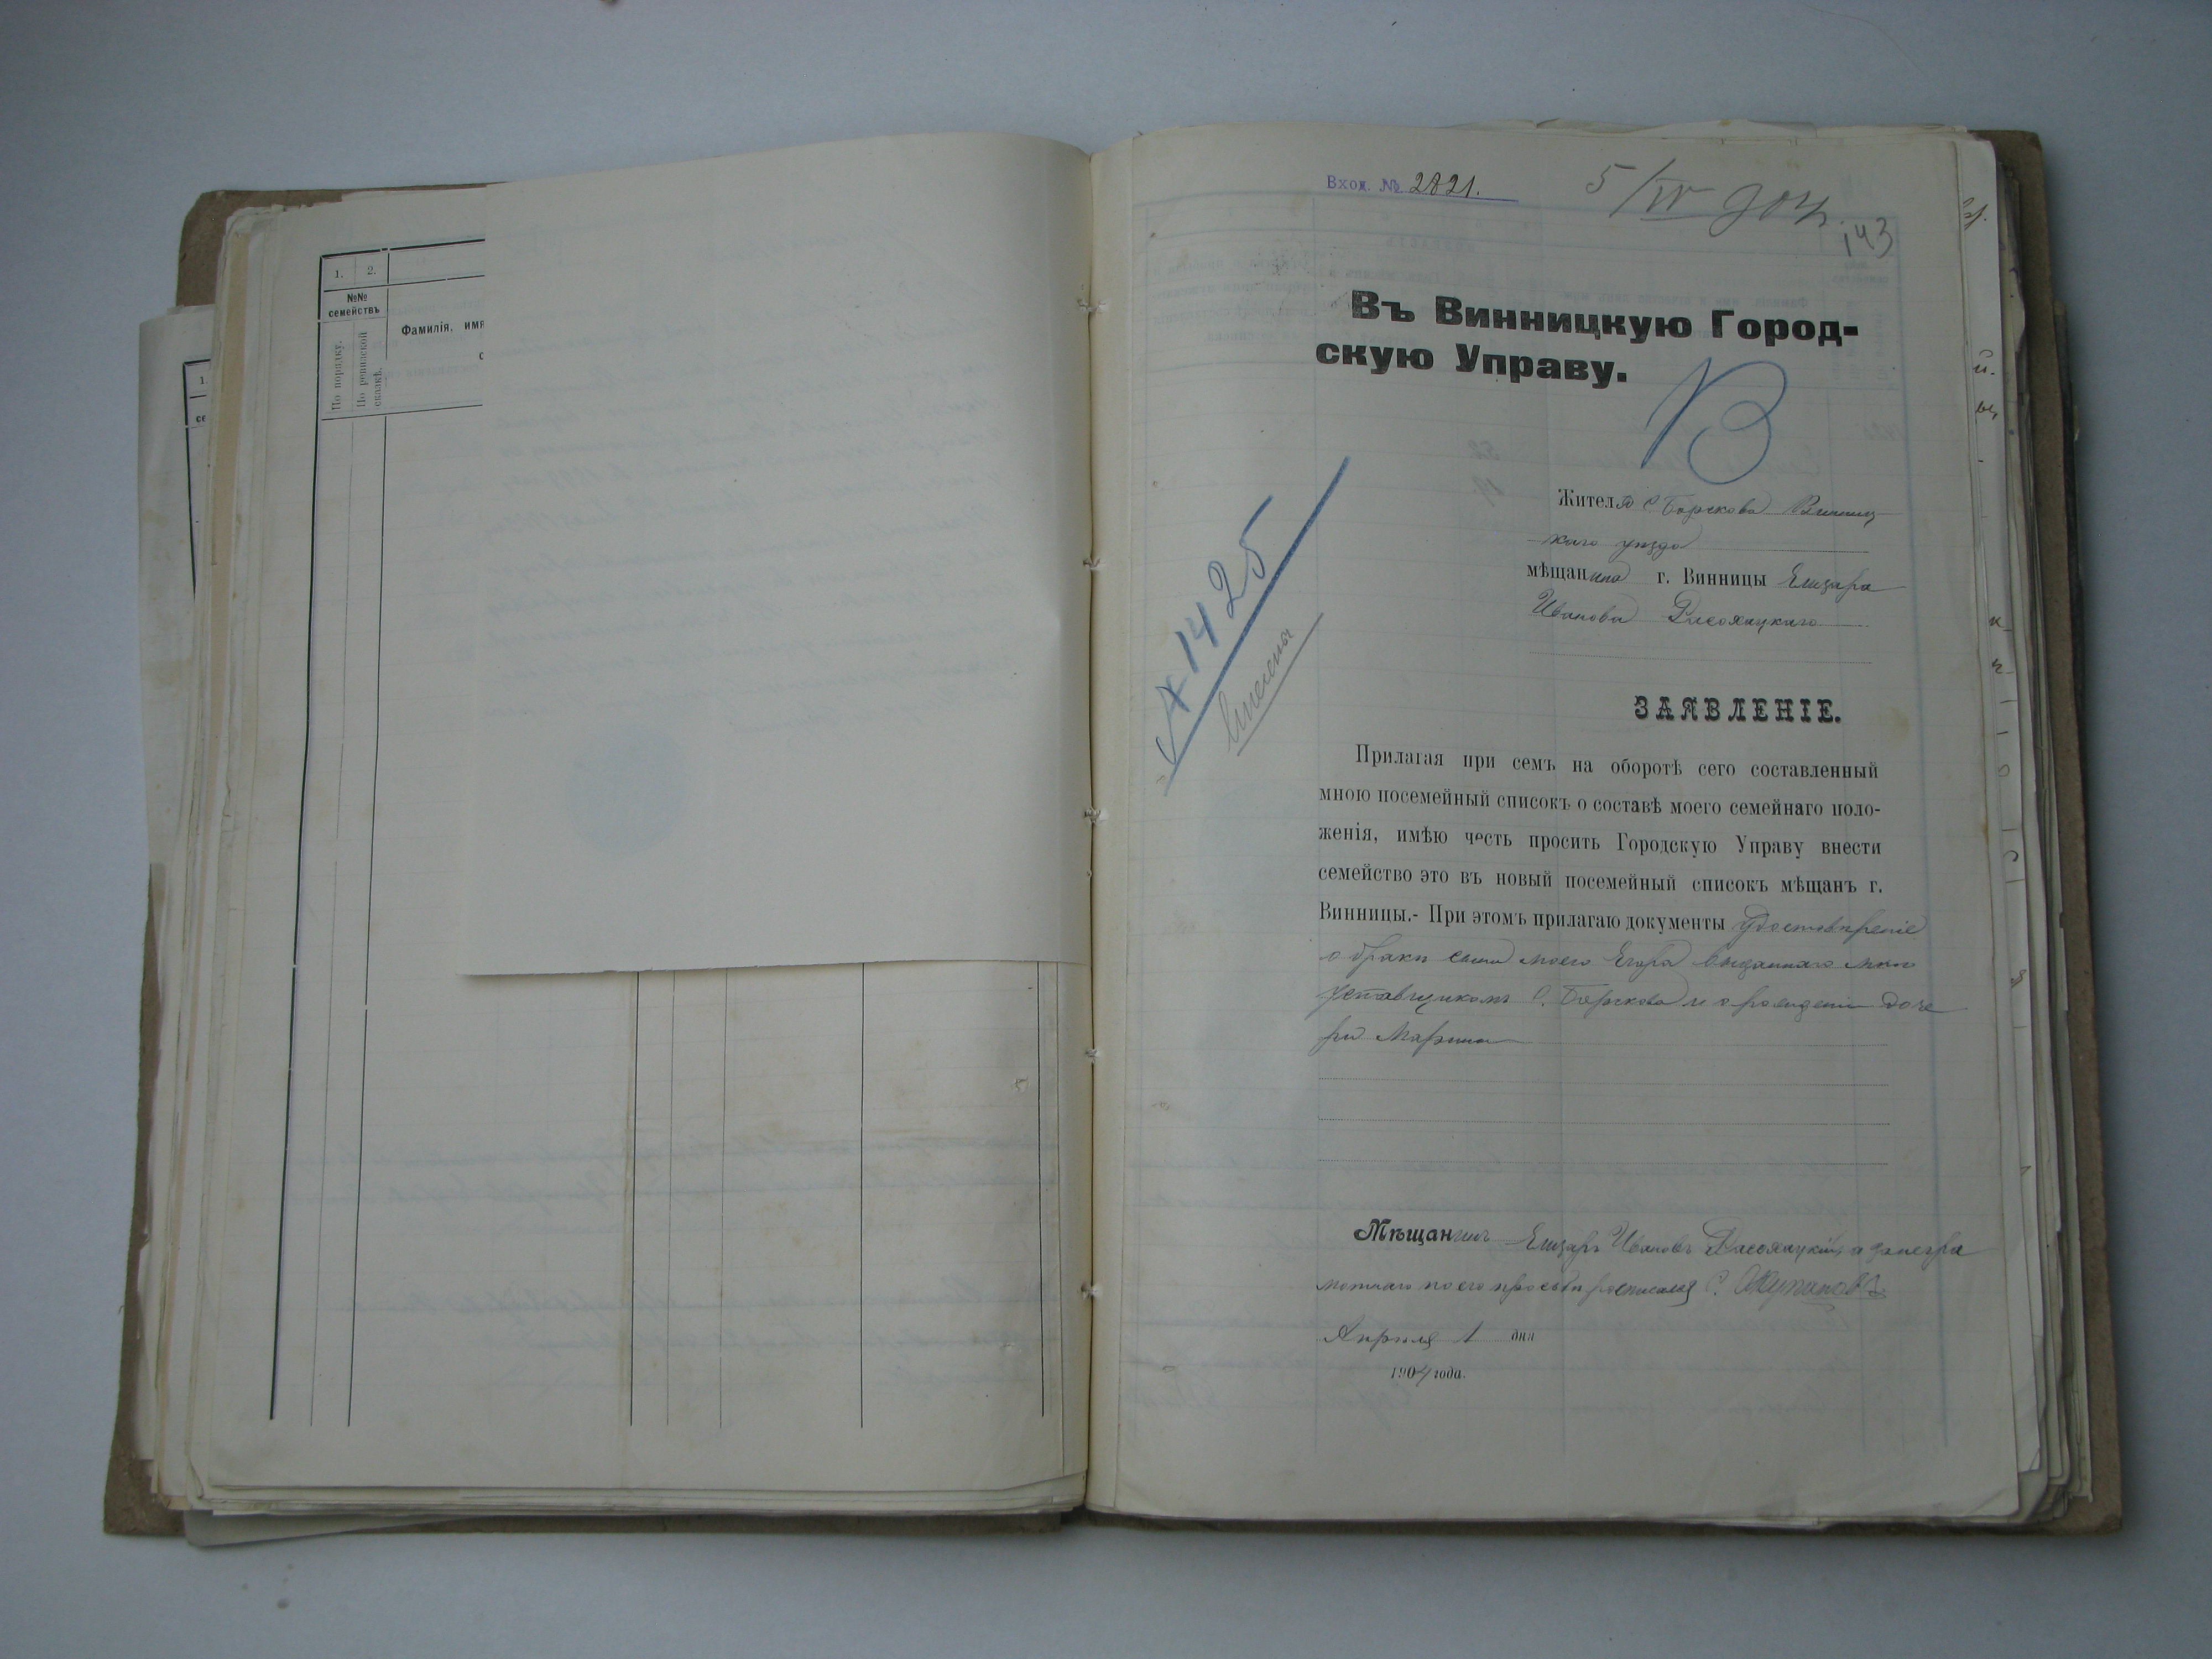 1. 2.
№№ семействъ
По порядку.
По ревизской сказкѣ.
Фамилія, имя
1.
Вход. № 2821.
5/IV 904.
143
Въ Винницкую Город-
скую Управу.
В
Жителя с Борскова Винниц-
каго уѣзда
мѣщанина г. Винницы Елизара
Иванова
№ 1425
внесены
ЗАЯВЛЕНІЕ.
Прилагая при семъ на оборотѣ сего составленный
мною посемейный списокъ о составѣ моего семейнаго поло-
женія, имѣю честь просить Городскую Управу внести
семейство это въ новый посемейный списокъ мѣщанъ г.
Винницы.- При этомъ прилагаю документы удостовѣреніе
о бракѣ сына моего Егора выданнаго мнѣ
уставщикомъ С. Борскова и о рожденіи доче
ри Марины
Мѣщанинъ Елизаръ Ивановъ а занегра
мотнаго по его просьбѣ росписался С.
Апрѣля 1 дня
1904 года.